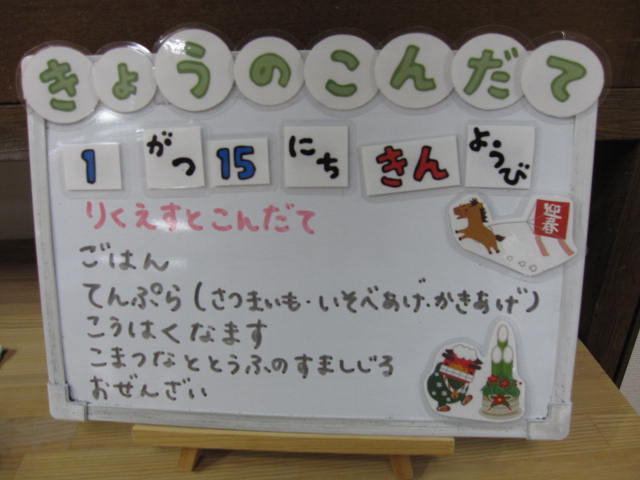 きょうのこんだて
1 がつ 15 にち きん ようび
りくえすとこんだて
迎春
ごはん
てんぷら(さつまいも・いそべあげ・かきあげ)
こうはくなます
こまつなととうふのすましじる
おぜんざい